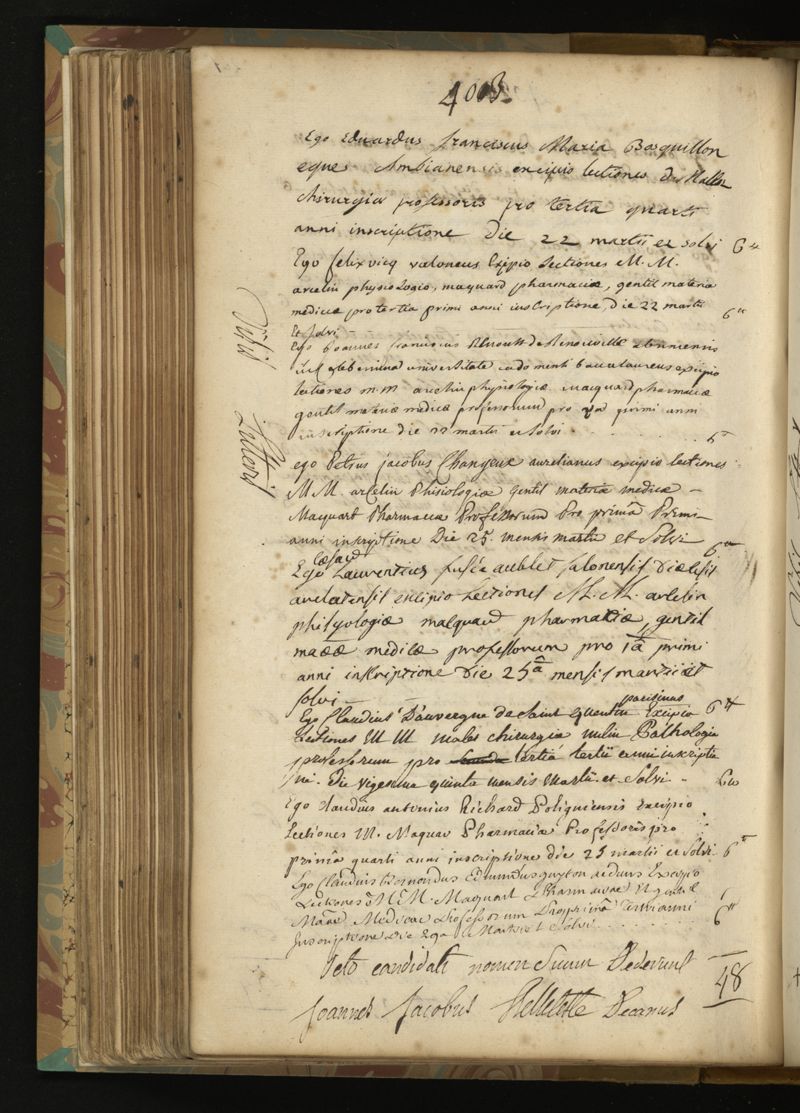 4003
Ego Eduardus franciscus Maria Bosquillon
eques Ambianensis excipio lectiones D. Mallon
chirurgiæ professoris pro tertia quarti
anni inscriptione Die 22 martii et solvi 6 ll
Ego felix vicq valoneus Exipio Lectiones M. M.
arcelin physiologiæ, maquard pharmaciæ, gentil materia
medicæ pro tertia primi anni inscriptione, Die 22 martii
Et solvi - 6 ll
Ego Joannes franciscus
in celeberrima universitate cadomensi baccalaureus excipio
lectiones m.m arcelin physiologiæ macquard pharmaciæ
gentil materiæ medicæ professorum pro primi anni
inscriptione die 22 martii et solvi . . . . . . 6 ll
ego Petrus jacobus Changeux aurelianus excipio lectiones
M.M. arcelin Phisiologiæ Gentil materiæ medicæ -
Maquart Pharmaciæ Professorum Pro primâ Primi
anni inscryptione Die 25. mensis martii et Solvi 6 ll
cæsar
Ego Laurentius fusée aublet salonensis diæcesis
arelatensis excipio Lectiones M. M. arcelin
phisyologiæ malquard pharmatiæ, gentil
maææ medicæ professorum pro 1â primi
anni inskriptione Die 25â mensis martii et
solvi - 6 ll
parisinus
Ego Claudius D'auvergne de Saint Quentin Excipio
Lectiones M M males chirurgiæ Pathologiæ
professorum pro tertiâ tertii anni inscriptio
ni. die vigesima quinta mensis Martii. et Solvi -
Ego claudius antonius Richard Poligniensis Excipio
Lectiones M. Maquar Pharmaciæ Professoris pro
primâ quarti anni inscriptione die 25 martii et Solvi 6 ll
Ego Claudius Edmundus guyton æduus Excipio
Lectiones M. M. Maquart Pharmaceuæ Et gentil
Maæ Medicæ Professorum Pro primâ anni
Inscriptione Die Martii et Solvi . . . . . . 6 ll
Octo candidati nomen Suum Dederunt 48
Joannes Jacobus Belleteste Decanus